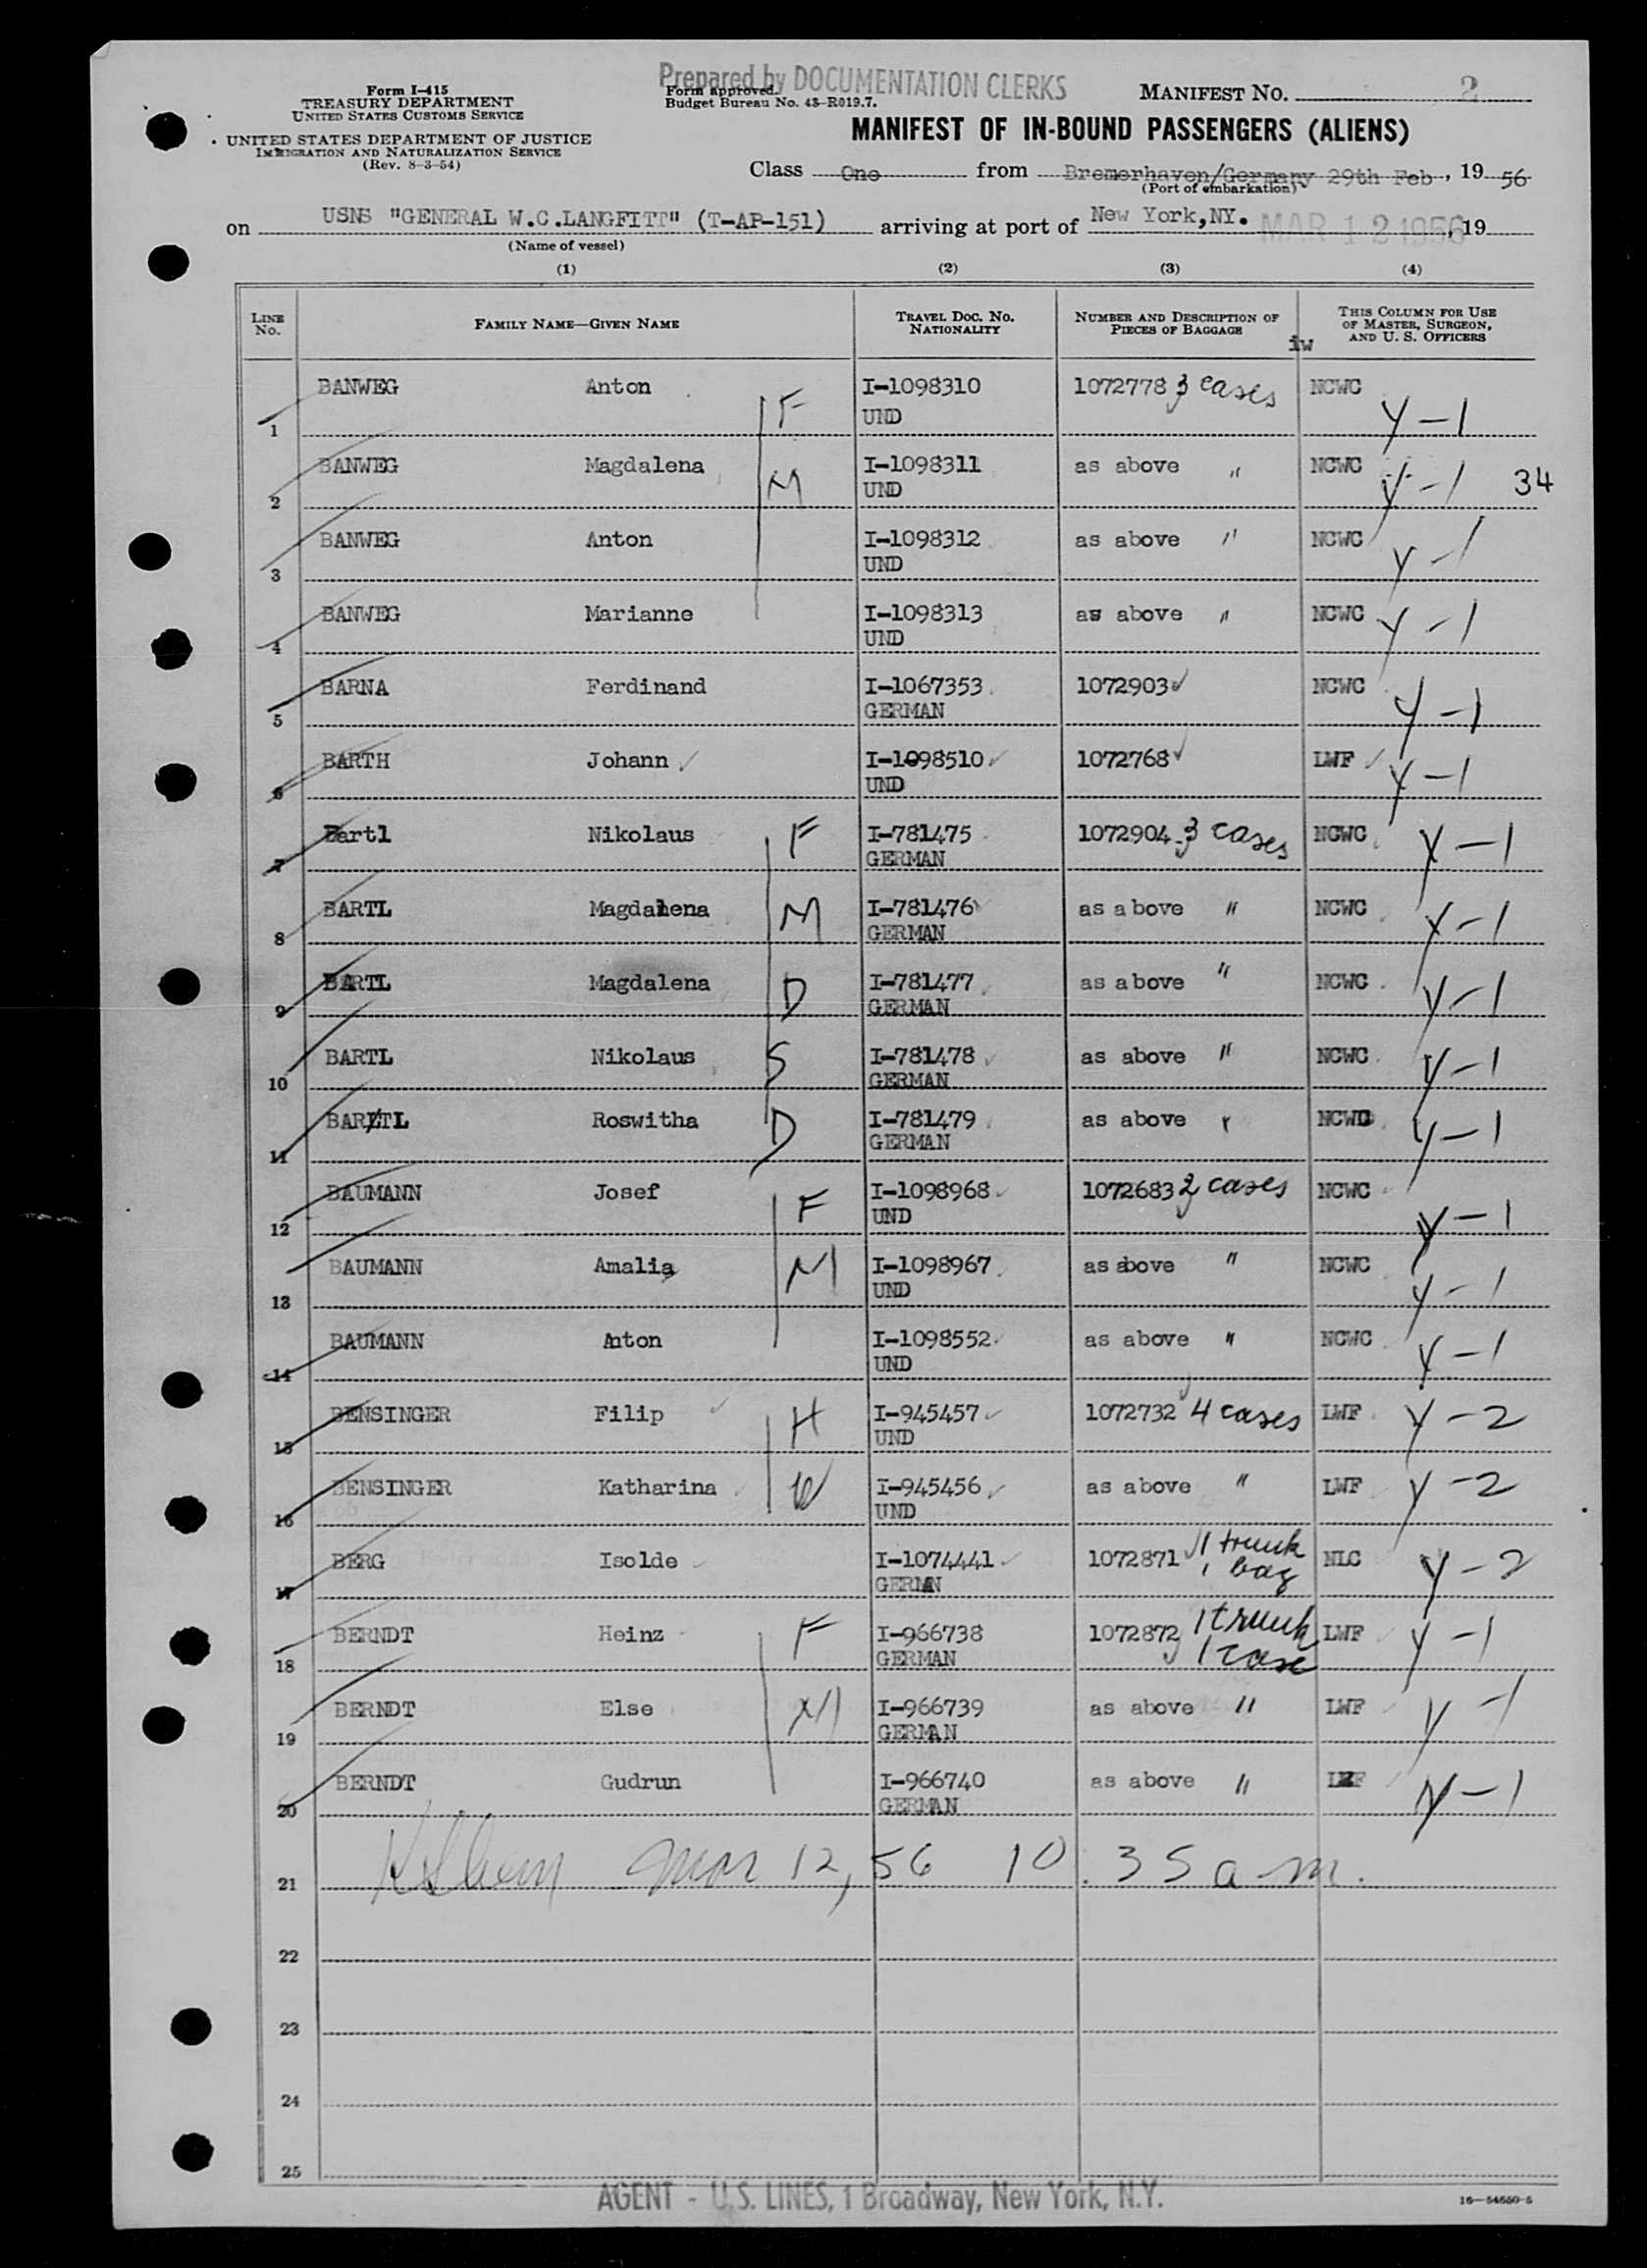 Prepared by DOCUMENTATION CLERKS
Form I-415
TREASURY DEPARTMENT
UNITED STATES CUSTOMS SERVICE
UNITED STATES DEPARTMENT OF JUSTICE
IMMIGRATION AND NATURALIZATION SERVICE
(Rev. 8-3-54)
Form approved.
Budget Bureau No. 43-R019.7.
MANIFEST NO. 2
MANIFEST OF IN-BOUND PASSENGERS (ALIENS)
Class One from Bremerhaven/Germany 29th Feb, 19 56
(Port of embarkation)
on USNS "GENERAL W.C.LANGFITT" (T-AP-151) arriving at port of New York,NY. MAR 12 1956, 19
(Name of vessel)
(1) (2) (3) (4)
LINE NO. FAMILY NAME—GIVEN NAME TRAVEL DOC. NO. NATIONALITY NUMBER AND DESCRIPTION OF PIECES OF BAGGAGE THIS COLUMN FOR USE OF MASTER, SURGEON, AND U. S. OFFICERS
iw
BANWEG Anton F I-1098310 1072778 3 cases NCWC
1 UND Y-1
BANWEG Magdalena M I-1098311 as above " NCWC
2 UND Y-1 34
BANWEG Anton I-1098312 as above " NCWC
3 UND Y-1
BANWEG Marianne I-1098313 as above " NCWC
4 UND Y-1
BARNA Ferdinand I-1067353 1072903 NCWC
5 GERMAN Y-1
BARTH Johann I-1098510 1072768 LWF
6 UND Y-1
Bartl Nikolaus F I-781475 1072904 3 cases NCWC
7 GERMAN Y-1
BARTL Magdalena M I-781476 as above " NCWC
8 GERMAN Y-1
BARTL Magdalena D I-781477 as above " NCWC
9 GERMAN Y-1
BARTL Nikolaus S I-781478 as above " NCWC
10 GERMAN Y-1
BARTL Roswitha D I-781479 as above " NCWC
11 GERMAN Y-1
BAUMANN Josef F I-1098968 1072683 2 cases NCWC
12 UND Y-1
BAUMANN Amalia M I-1098967 as above " NCWC
13 UND Y-1
BAUMANN Anton I-1098552 as above " NCWC
14 UND Y-1
BENSINGER Filip H I-945457 1072732 4 cases LWF Y-2
15 UND
BENSINGER Katharina W I-945456 as above " LWF Y-2
16 UND
BERG Isolde I-1074441 1072871 1 trunk NLC Y-2
17 GERMAN 1 bag
BERNDT Heinz F I-966738 1072872 1 trunk LWF Y-1
18 GERMAN 1 case
BERNDT Else M I-966739 as above " LWF Y-1
19 GERMAN
BERNDT Gudrun I-966740 as above " LWF Y-1
20 GERMAN
21 Mar 12, 56 10.35 a.m.
22
23
24
25
AGENT - U.S. LINES, 1 Broadway, New York, N.Y.
16—54650-5